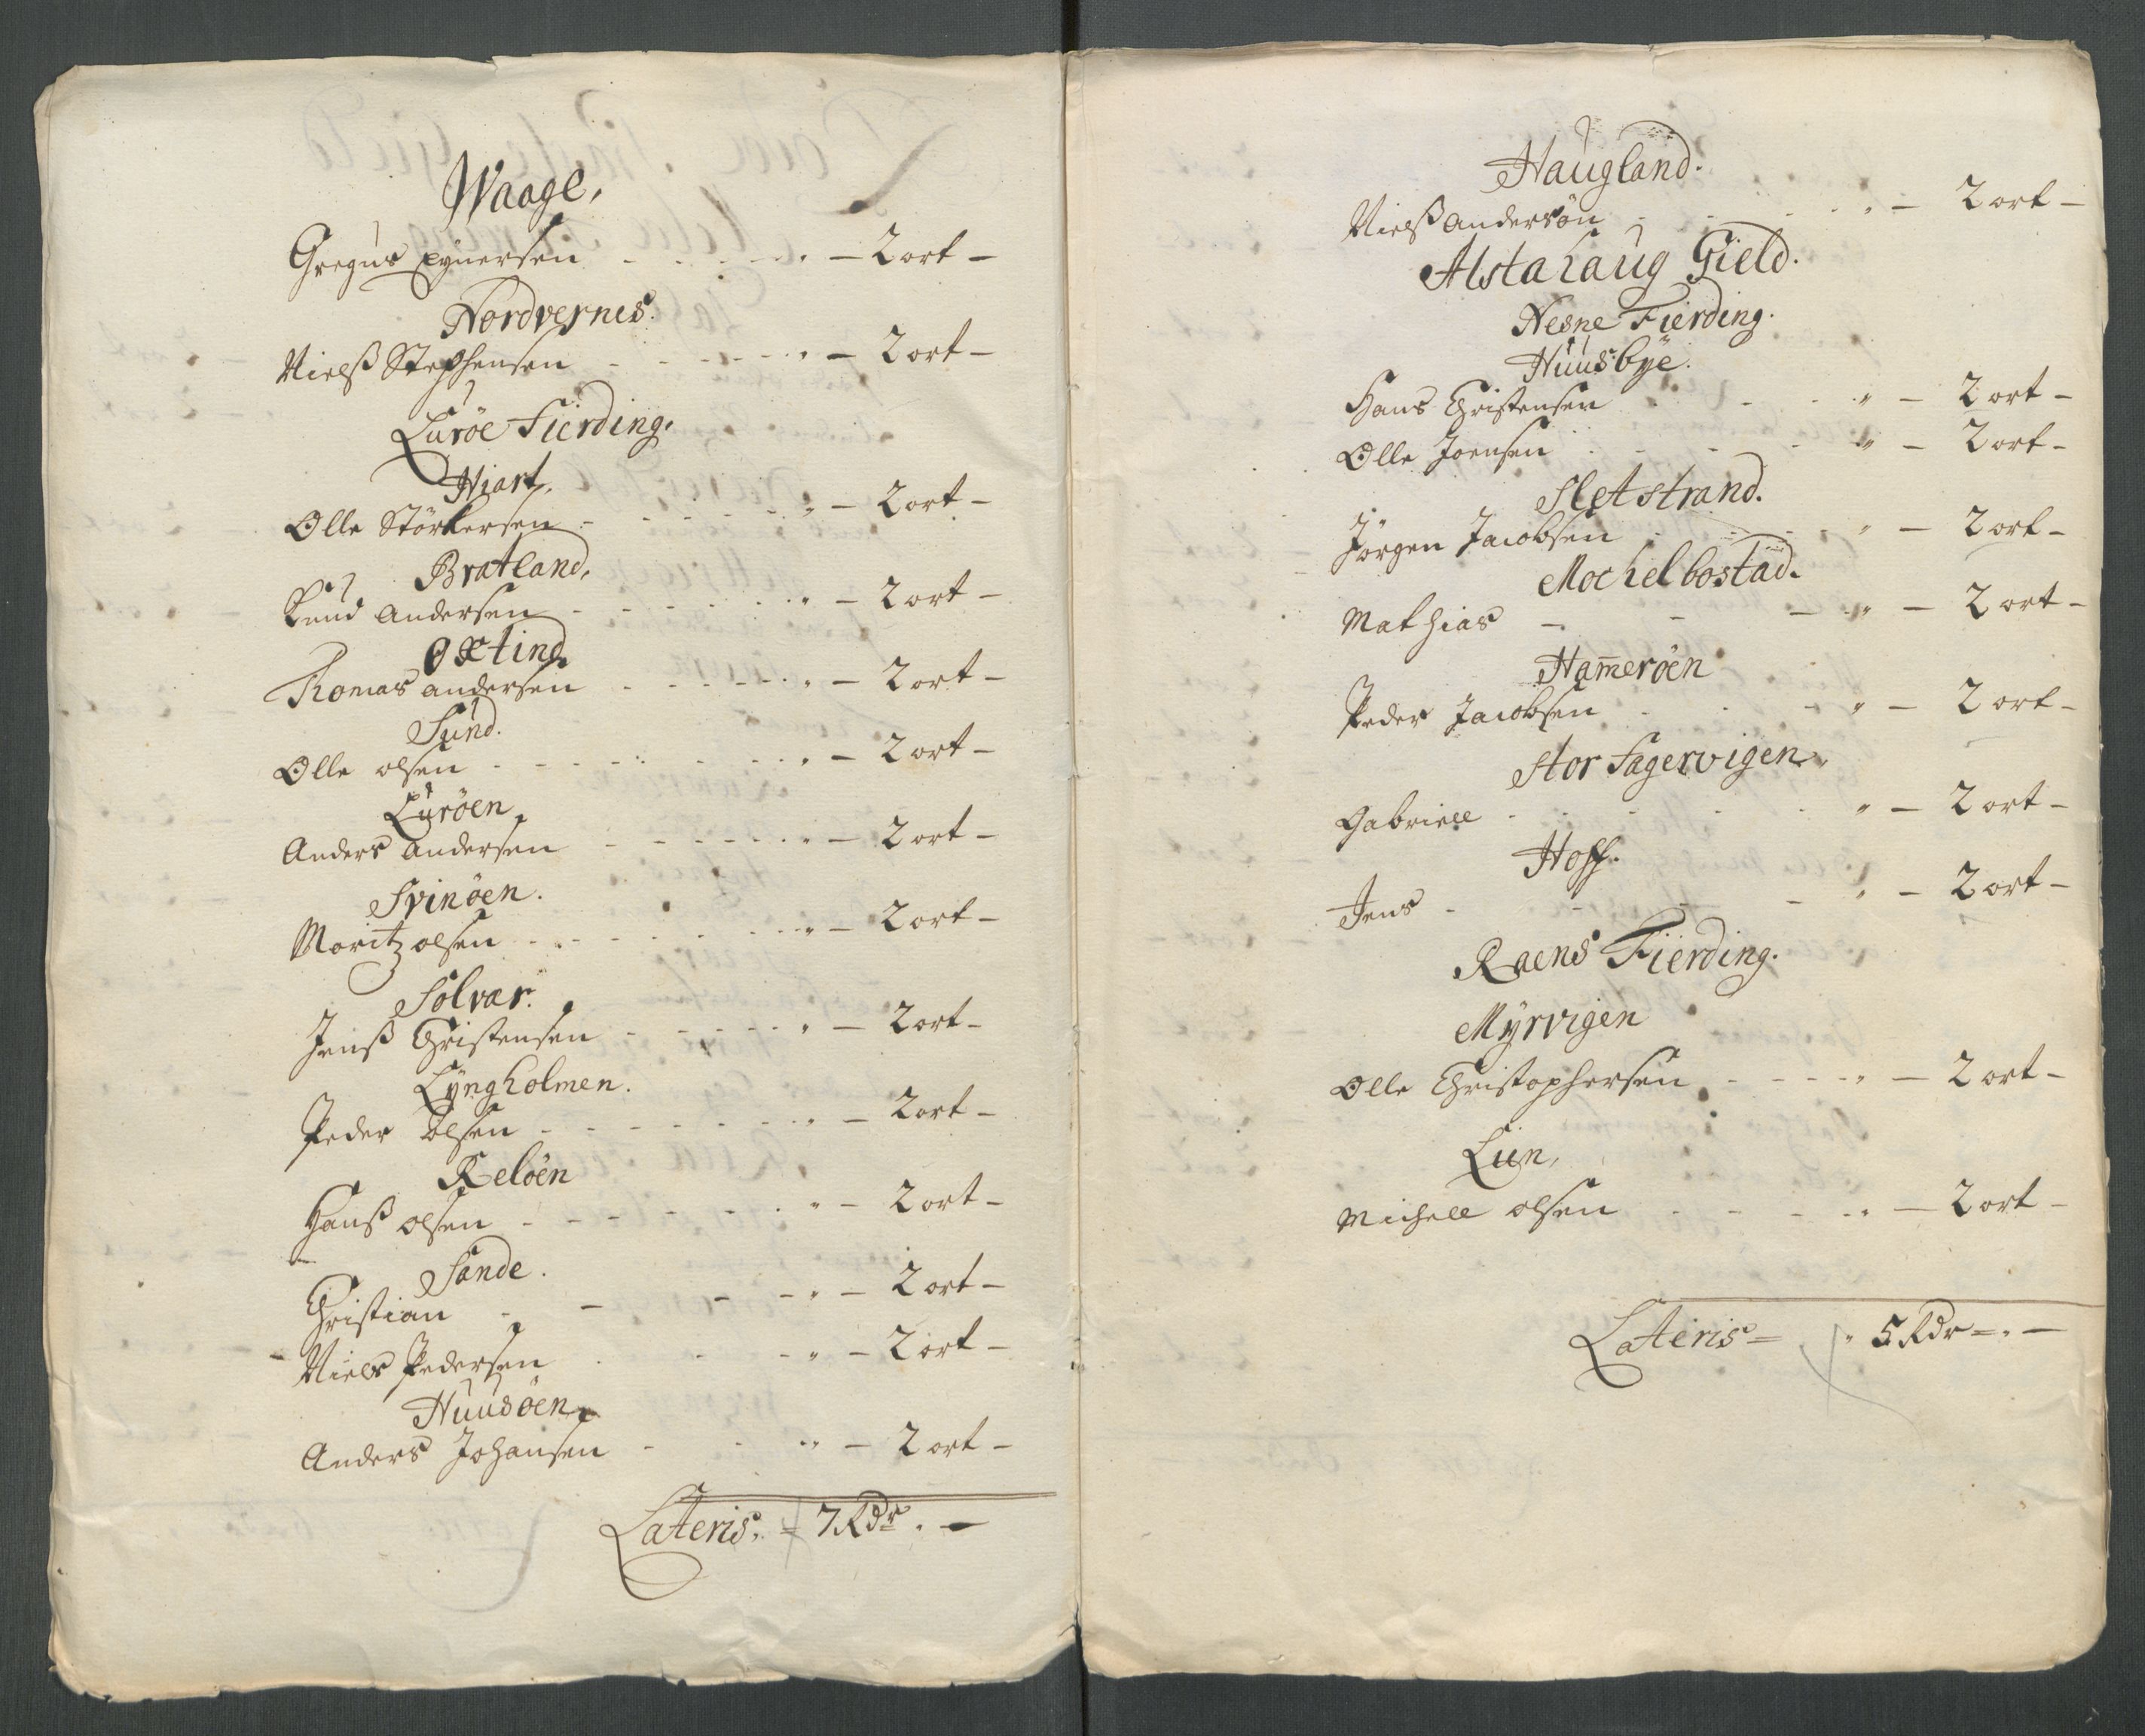 Waage,
Gregus Eynersen - - - - - " - 2 ort -
Nordvernes.
Nielß Stephensen - - - - - " - 2 ort -
Lurøe Fierding.
Hiart,
Olle Størkersen - - - - - " - 2 ort -
Bratland,
Knud Andersen - - - - - " - 2 ort -
Oxtind
Thomas andersen - - - - - " - 2 ort -
Sund.
Olle olsen - - - - - " - 2 ort -
Luröen
Anders Andersen - - - - - " - 2 ort -
Svinöen.
Moritz olsen - - - - - " - 2 ort -
Solvær.
Jenß Christensen - - - - - " - 2 ort -
Lÿngholmen.
Peder Olsen - - - - - " - 2 ort -
Relöen
Hanß olsen - - - - - " - 2 ort -
Sande.
Christian - - - - " - 2 ort -
Niels Pedersen - - - " - 2 ort -
Huusöen
Anders Johansen - - " - 2 ort -
Lateris. = 7 Rdr. -
Haugland.
Nielß Andersön - - - " - 2 ort -
Alstahaug Gield.
Nesne Fierding.
Huusbÿe.
Hans Christensen - - - " - 2 ort -
Olle Joensen - - - " - 2 ort -
Sletstrand.
Jörgen Jacobsen - - - " - 2 ort -
Mochelbostad.
Mathias - - - " - 2 ort -
Ham̄eröen
Peder Jacobsen - - - " - 2 ort -
Stor Fagervigen
Gabriell - - - " - 2 ort -
Hoff.
Jens - - - " - 2 ort -
Raens Fierding.
Mÿrvigen
Olle Christophersen - - - " - 2 ort -
Lien,
Michell olsen - - - " - 2 ort -
Lateris = " 5 Rdr = " -